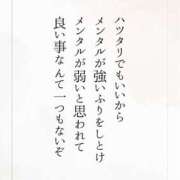 ハツタリでもいいから
メンタルが強いふりをしとけ
メンタルが弱いと思われて
良い事なんて一つもないぞ